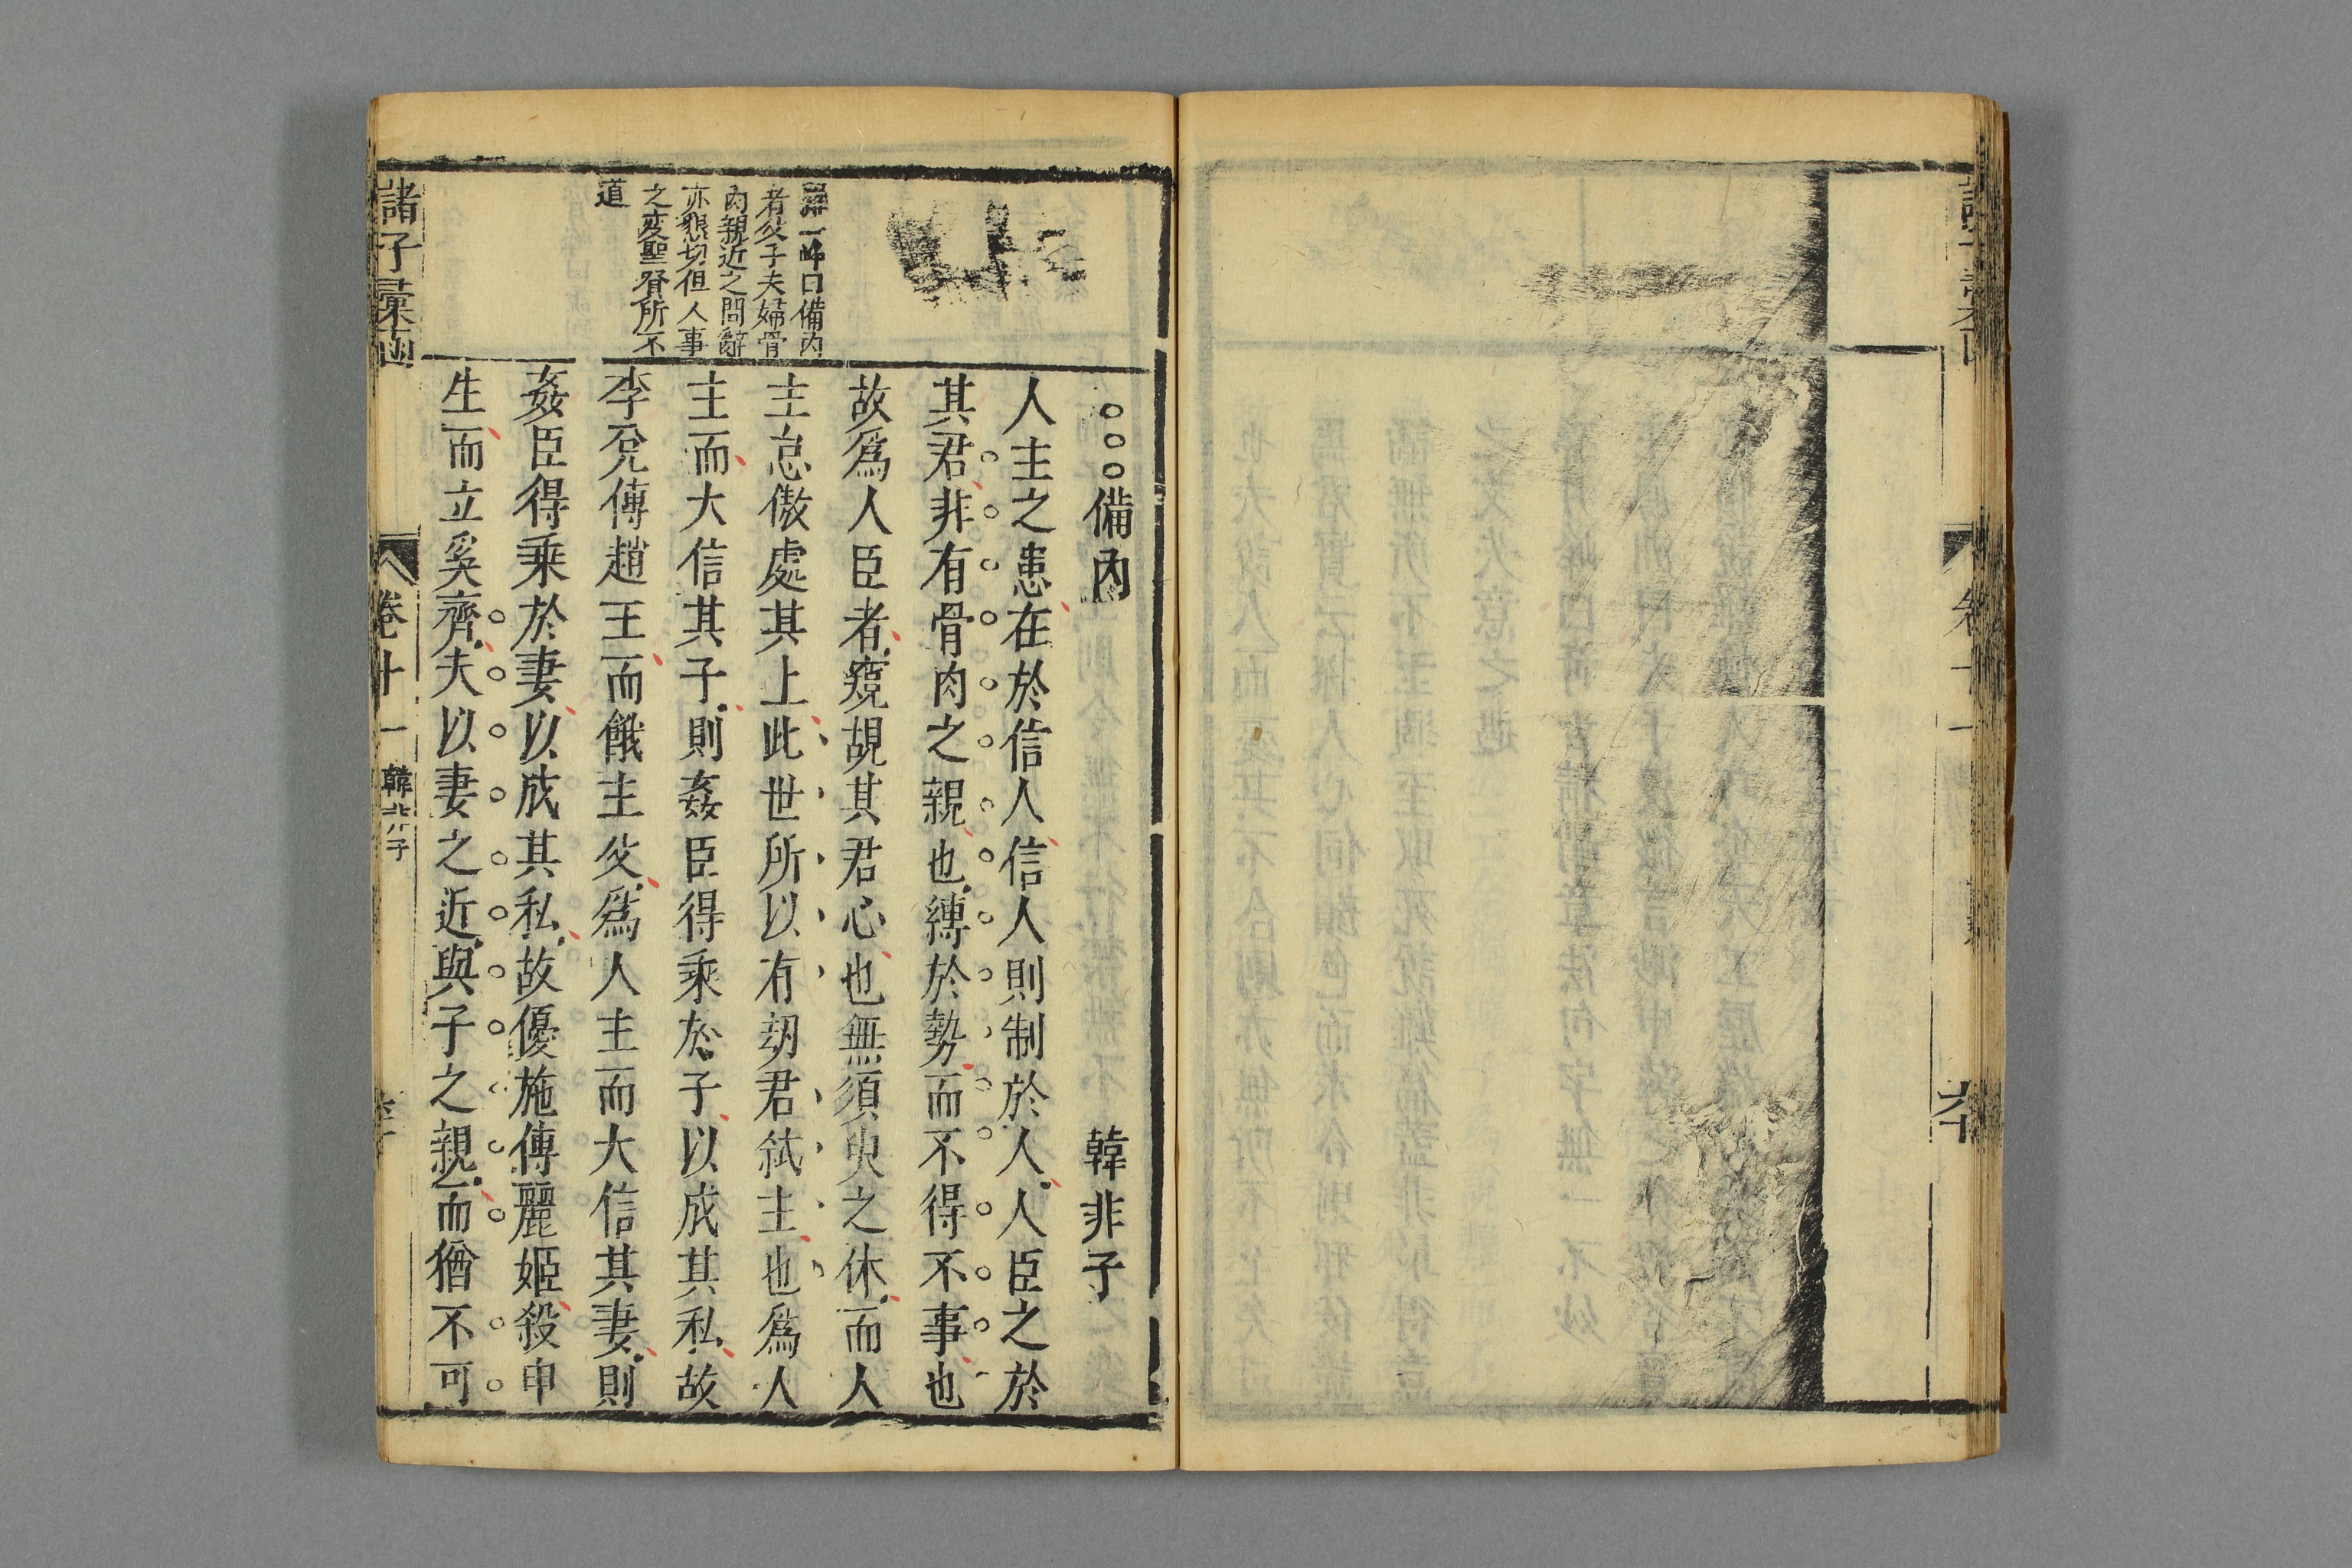 備內　韓非子
人主之患在於信人信人則制於人人臣之於
其君非有骨肉之親也縛於勢而不得不事也
故爲人臣者窺覘其君心也無須臾之休而人
主怠傲處其上此世所以有刼君弒主也爲人
主而大信其子則姦臣得乘於子以成其私故
李兌傅趙王而餓主父爲人主而大信其妻則
姦臣得乘於妻以成其私故優施傅麗姬殺申
生而立奚齊夫以妻之近與子之親而猶不可
一峰曰備內
者父子夫婦骨
肉親近之間辭
亦懇切但人事
之変聖賢所不
道
諸子彙函
卷十一
韓非子
卷十一